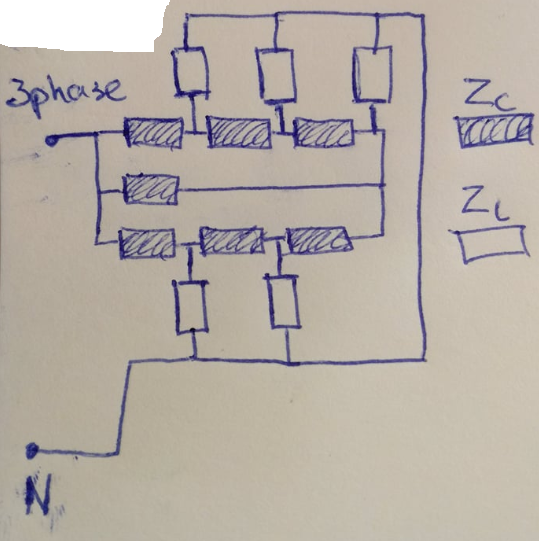 3phase
Zc
ZL
N